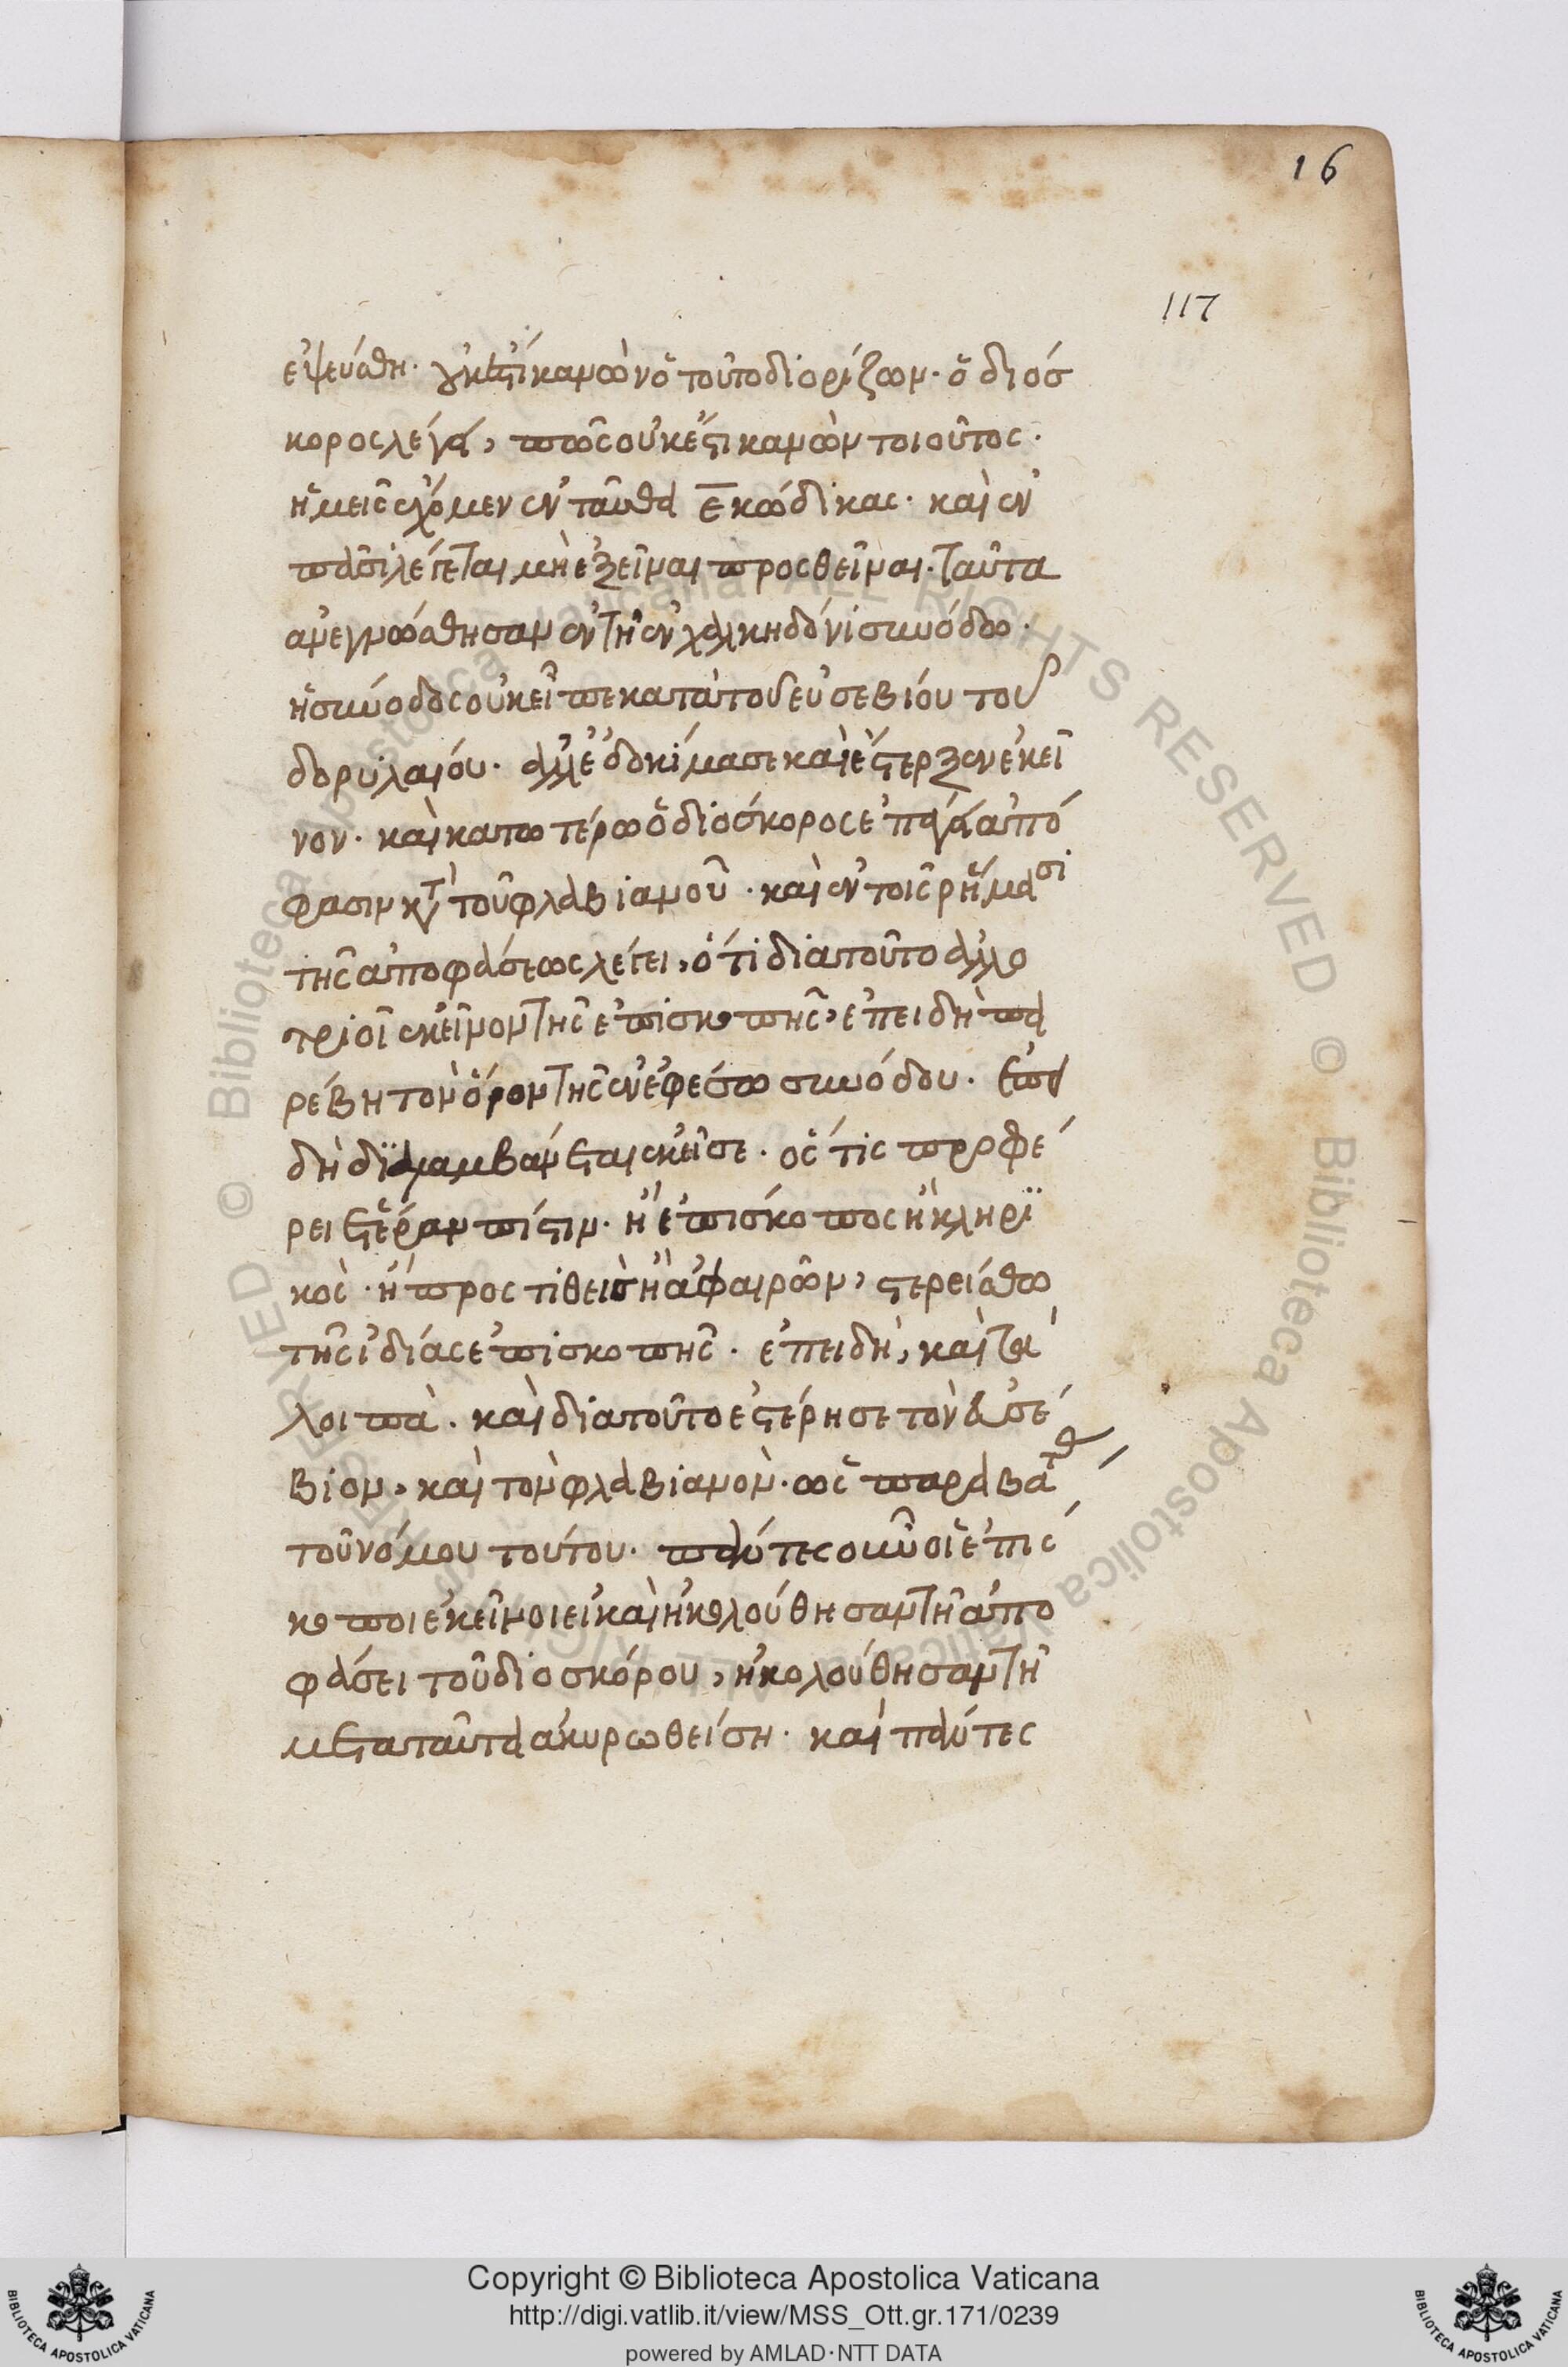 16
117
ἐψεύσθη. οὐκ ἔστι κανὼν ὁ τοῦτο διορίζων. ὁ διόσ
κορος λέγει, πῶς οὐκ ἔστι κανὼν τοιοῦτος.
ἡμεῖς ἔχομεν ἐνταῦθα ε κώδικας. καὶ ἐν
πᾶσι λέγεται μὴ ἐξεῖναι προσθεῖναι. ταῦτα
ἀνεγνώσθησαν ἐν τῇ ἐν χαλκηδόνι συνόδω.
ἡ σύνοδος οὐκ εἶπε κατὰ τοῦ εὐσεβίου τοῦ
δορυλαίου. ἀλλ' ἐδοκίμασε καὶ ἔστερξεν ἐκεῖ
νον. καὶ κατωτέρω ὁ διόσκορος ἐπάγει ἀπό
φασιν κατὰ τοῦ φλαβιανοῦ. καὶ ἐν τοῖς ῥήμασι
τῆς ἀποφάσεως λέγει, ὅτι διατοῦτο ἀλλο
τριοῖ ἐκεῖνον τῆς ἐπισκοπῆς, ἐπειδὴ πα
ρέβη τὸν ὅρον τῆς ἐν ἐφέσω συνόδου. ἐπει
δὴ διαλαμβάνεται ἐκεῖσε. ὅς τις προφέ
ρει ἑτέραν πίστιν. ἢ ἐπίσκοπος ἢ κληρϊ
κὸς. ἢ προστιθεὶς ἢ ἀφαιρῶν, στερείσθω
τῆς ἰδίας ἐπισκοπῆς. ἐπειδὴ, καὶ τὰ
λοιπὰ. καὶ διατοῦτο ἐστέρησε τὸν εὐσέ
βιον, καὶ τὸν φλαβιανὸν. ὡς παραβάτας
τοῦ νόμου τούτου. πάντες οὖν οἱ ἐπίσ
κοποι ἐκεῖνοι εἰ καὶ ἠκολούθησαν τῇ ἀπο
φάσει τοῦ διοσκόρου, ἠκολούθησαν τῇ
μεταταῦτα ἀκυρωθείση. καὶ πάντες
Copyright © Biblioteca Apostolica Vaticana
http://digi.vatlib.it/view/MSS_Ott.gr.171/0239
powered by AMLAD·NTT DATA